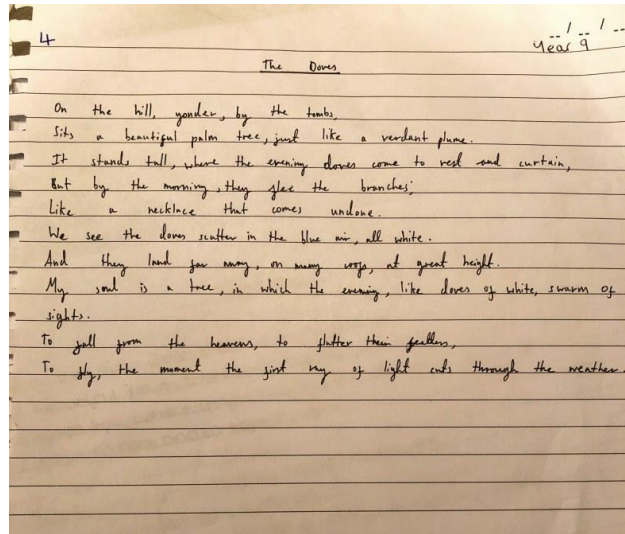 4
__/__/__
Year 9
The Doves
On the hill, yonder, by the tombs,
Sits a beautiful palm tree, just like a verdant plume.
It stands tall, where the evening doves come to rest and curtain,
But by the morning, they flee the branches;
Like a necklace that comes undone.
We see the doves scatter in the blue air, all white.
And they land far away, on many roofs, at great height.
My soul is a tree, in which the evening, like doves of white, swarm of
sights.
To fall from the heavens, to flutter their feathers,
To fly, the moment the first ray of light cuts through the weather.